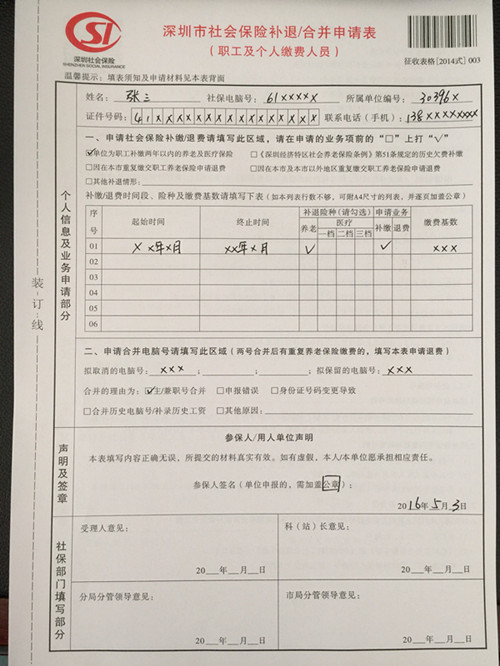 深圳社会保险
SHENZHEN SOCIAL INSURANCE
深圳市社会保险补退/合并申请表
（职工及个人缴费人员）
征收表格[2014式] 003
温馨提示：填表须知及申请材料见本表背面
姓名：张三 社保电脑号：61xxxxx 所属单位编号：30396x
证件号码：41xxxxxxxxxxxxxxxx 联系电话（手机）：138xxxxxxxx
一、申请社会保险补缴/退费请填写此区域，请在申请的业务项前的“□”上打“√”
☑单位为职工补缴两年以内的养老及医疗保险 □《深圳经济特区社会养老保险条例》第51条规定的历史欠费补缴
□因在本市重复缴交职工养老保险申请退费 □因在本市及本市以外地区重复缴交职工养老保险申请退费
□其他补退情形：
补缴/退费时间段、险种及缴费基数请填写下表（如本列表行数不够，可附A4尺寸的列表，并逐页加盖公章）
序号 起始时间 终止时间 补退险种（请勾选） 申请业务 缴费基数
养老 医疗 补缴 退费
一档 二档 三档
01 xx年x月 xx年x月 √ √ xxx
02
03
04
05
06
二、申请合并电脑号请填写此区域（两号合并后有重复养老保险缴费的，填写本表申请退费）
拟取消的电脑号：xxx ； ； ；拟保留的电脑号：xxx
合并的理由为：☑主/兼职号合并 □申报错误 □身份证号码变更导致
□合并历史电脑号/补录历史工资 □其他原因：
个人信息及业务申请部分
装订线
参保人/用人单位声明
本表填写内容正确无误，所提交的材料真实有效。如有虚假，本人/本单位愿承担相应责任。
参保人签名（单位申报的，需加盖公章）：
2016年5月3日
声明及签章
受理人意见： 科（站）长意见：
20__年__月__日 20__年__月__日
分局分管领导意见： 市局分管领导意见：
20__年__月__日 20__年__月__日
社保部门填写部分